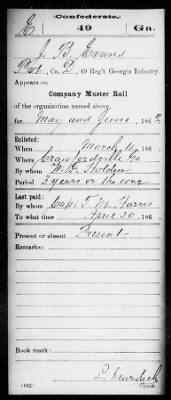 Confederate.
E 49 Ga.
J. B. Evans
Pvt, Co. D, 49 Reg't Georgia Infantry.
Appears on
Company Muster Roll
of the organization named above,
for May and June, 1862
Enlisted:
When March 4, 186
Where Crawfordville Ga
By whom W. F. Holden
Period 3 years or the war
Last paid:
By whom Capt. T. W. Harris
To what time April 30, 186
Present or absent Present
Remarks:
Book mark:
(642)
Copyist.